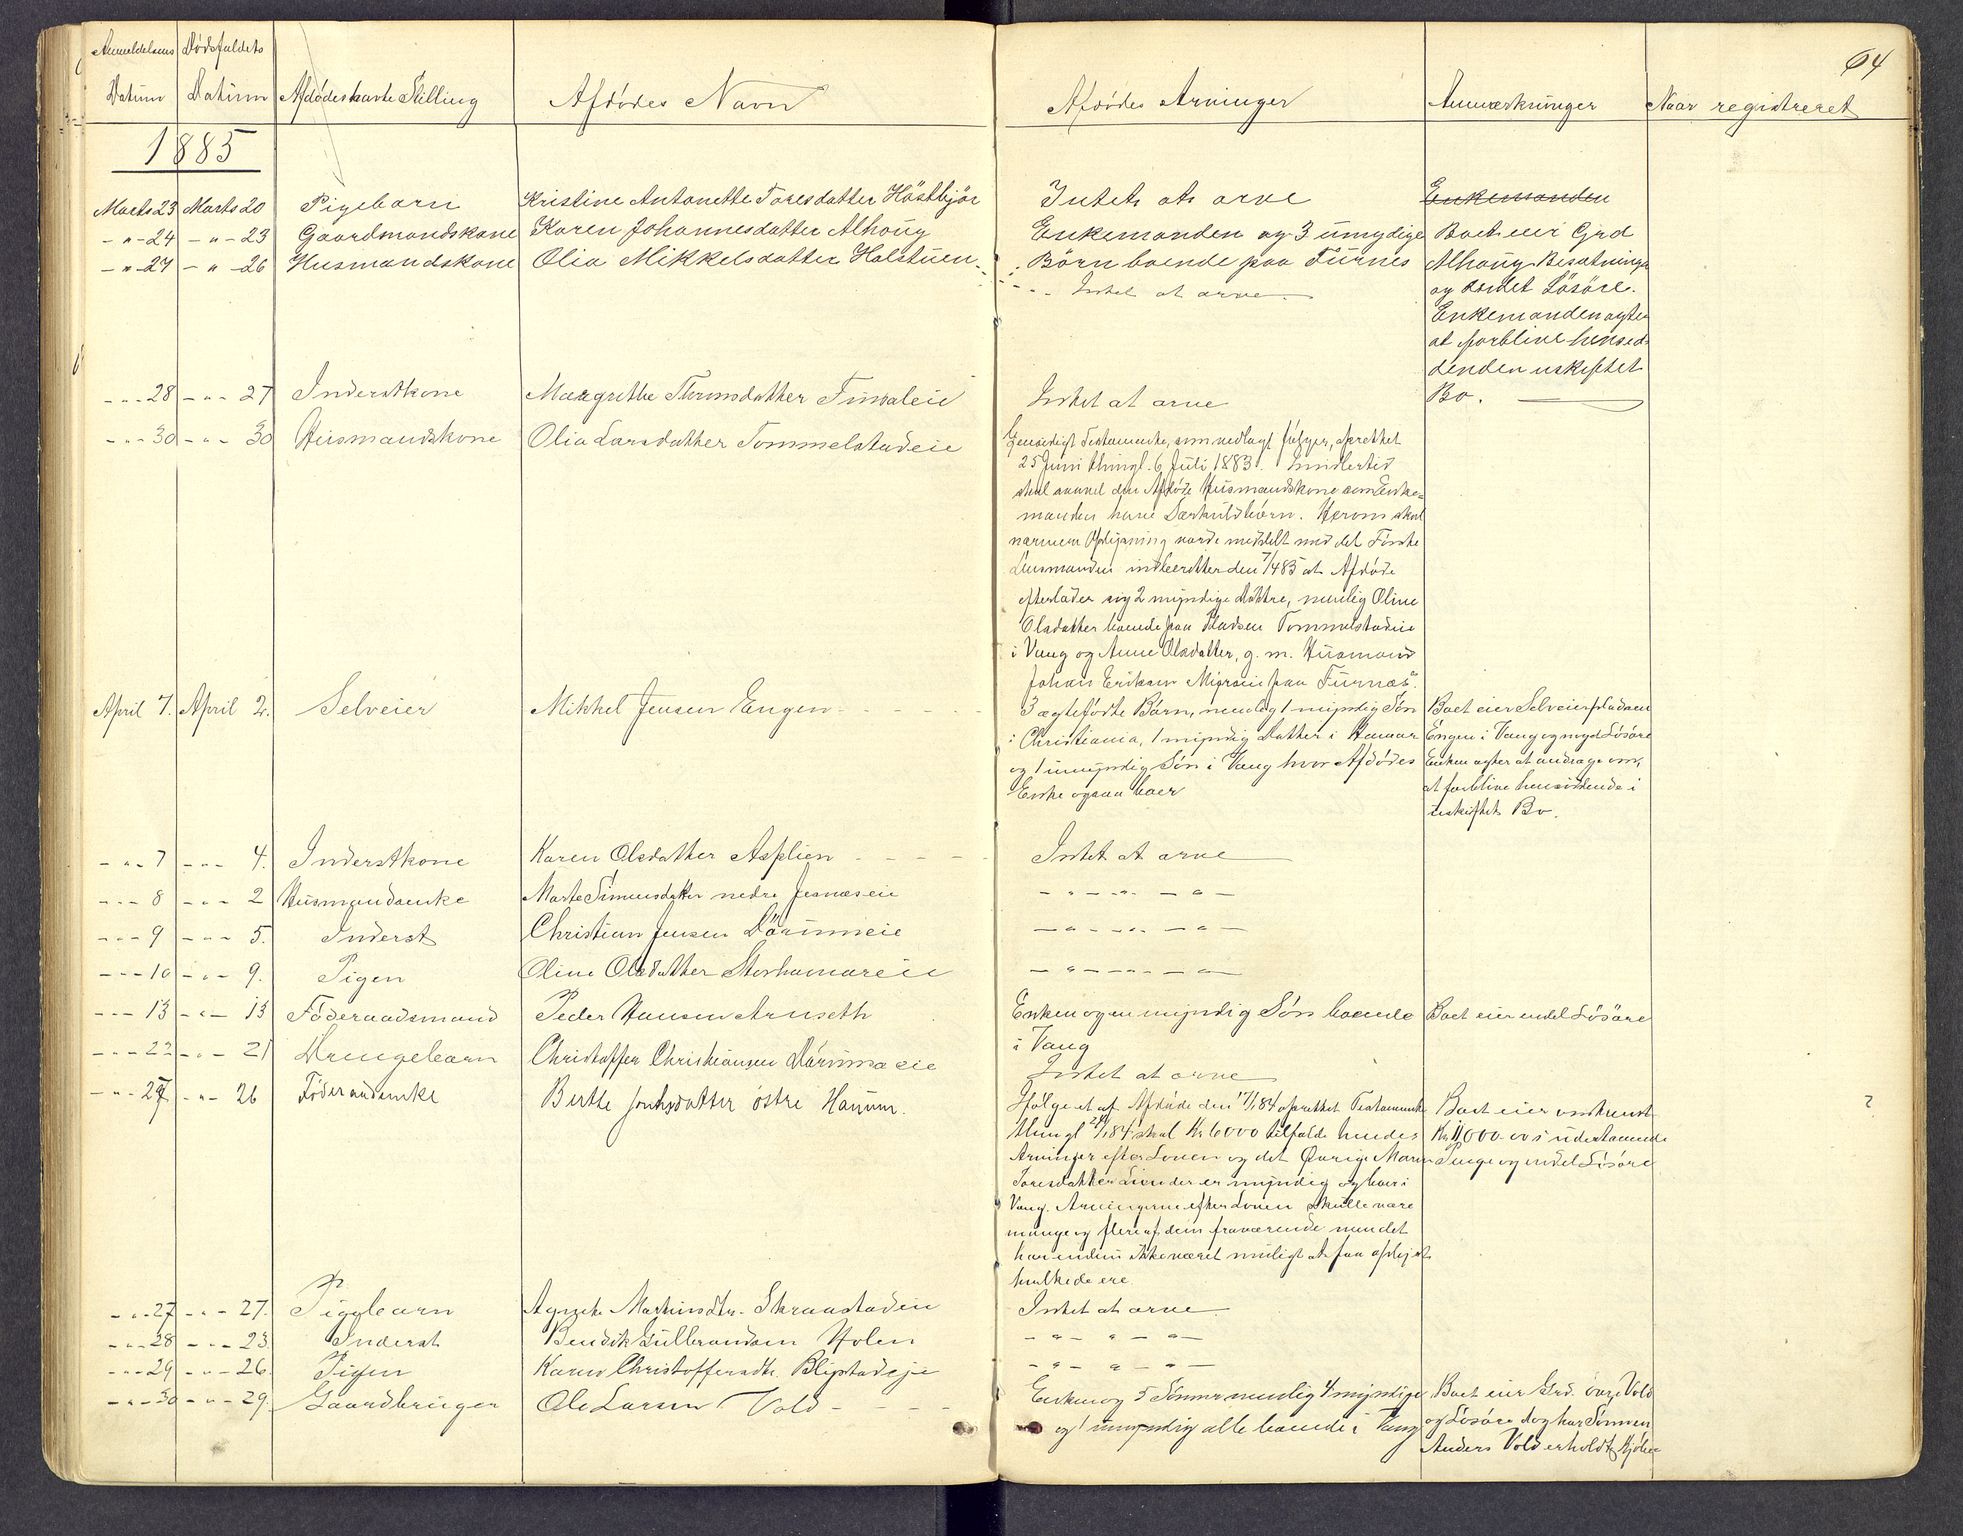 64
Anmeldelsens Dødsfaldets
Datum Datum Afdødes havte Stilling Afdødes Navn Afdødes Arvinger Anmærkninger Naar registreret
1885
Marts 23 Marts 20 Pigebarn Kristine Antonette Toresdatter Höstbjör Intet at arve Enkemanden
-"- 24 -"- 23 Gaardmandskone Karen Johannesdatter Alhoug Enkemanden og 3 umyndige Boet eier Grd
-"- 27 -"- 26 Husmandskone Olia Mikkelsdatter Holstuen Börn boende paa Furnes Alhoug Besætninge
Intet at arve og endel Lösöre.
Enkemanden agter
at forblive hensid-
denden uskiftet
Bo.
-"- 28 -"- 27 Inderstkone Margrethe Thomsdatter Finsaleie Intet at arve
-"- 30 -"- 30 Husmandskone Olia Larsdatter Tommelstadeie Gjensidigt Testamente, som vedlagt følger, oprettet
25 Juni thingl. 6 Juli 1883. Imidlertid
skal saavel den Afdøde Husmandskone som Enke-
manden have Særkuldbørn. Herom skal
nærmere Oplysning vorde meddelt med det Første
Lensmanden indberetter den 7/4 85 at Afdøde
efterlader sig 2 myndige Døttre, nemlig Oline
Olsdatter boende paa Pladsen Tommelstadeie
i Vang og Anne Olsdatter, g. m. Husmand
Johan Eriksen Migraeie paa Furnæs.
April 7. April 2. Selveier Mikkel Jensen Engen 3 ægtefødte Børn, nemlig 1 myndig Søn Boet eier Selveierpladsen
i Christiania, 1 myndig Datter i Hamar Engen i Vang og noget Løsøre
og 1 umyndig Søn i Vang hvor Afdødes Enken agter at andrage om,
Enke ogsaa boer at forblive hensiddende i
uskiftet Bo.
-"- 7 -"- 4. Inderstkone Karen Olsdatter Asplien Intet at arve
-"- 8 -"- 2 Husmandsenke Marte Simensdatter nedre Jesnæseie -"- -"- -"-
-"- 9 -"- 5. Inderst Christian Jensen Dörumeie -"- -"- -"-
-"- 10 -"- 9. Pigen Oline Olsdatter Storhamareie -"- -"- -"-
-"- 13 -"- 13 Föderaadsmand Peder Hansen Arnseth Enken og en myndig Søn boende Boet eier endel Lösöre
i Vang
-"- 22 -"- 21 Drengebarn Christoffer Christiansen Dörumseie Intet at arve
-"- 27 -"- 26 Föderaadsenke Berthe Jonsdatter østre Hanum. Ifølge et af Afdøde den 17/1 84 oprettet Testamente Boet eier omtrent
thingl 21/1 84 skal Kr 6000 tilfalde hendes Kr. 11000.00 i udestaaende
Arvinger efter Loven og det Øvrige Maren Penge og endel Lösöre
Toresdatter Lien der er myndig og bor i
Vang. Arvingerne efter Loven skulle være
mange og flere af dem fraværende men det
har endnu ikke været muligt at faa oplyst
hvilke de ere
-"- 27 -"- 27. Pigebarn Agnethe Martinsdtr. Skraastadeie Intet at arve
-"- 28 -"- 23. Inderst Bendik Gulbrandsen Holen -"- " -"-
-"- 29 -"- 26. Pigen Karen Christoffersdtr. Blystadeje -"- " -"-
-"- 30 -"- 29. Gaardbruger Ole Larsen Vold Enken og 5 Sønner nemlig 4 myndige Boet eier Grd. övre Vold
og 1 umyndig alle boende i Vang og Lösöre dog har Sönnen
Anders Vold erholdt Skjøde